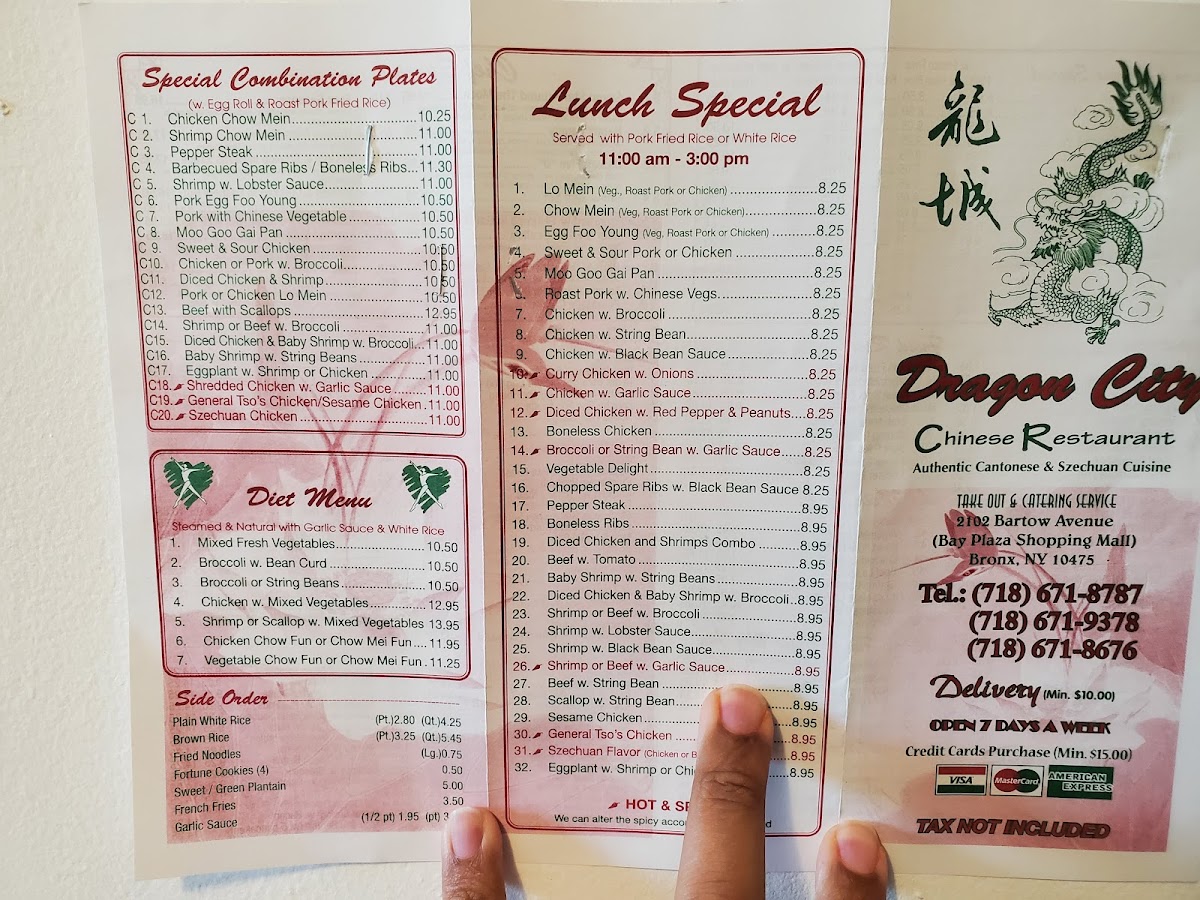 Special Combination Plates
(w. Egg Roll & Roast Pork Fried Rice)
C 1. Chicken Chow Mein 10.25
C 2. Shrimp Chow Mein 11.00
C 3. Pepper Steak 11.00
C 4. Barbecued Spare Ribs / Boneless Ribs...11.30
C 5. Shrimp w. Lobster Sauce 11.00
C 6. Pork Egg Foo Young 10.50
C 7. Pork with Chinese Vegetable 10.50
C 8. Moo Goo Gai Pan 10.50
C 9. Sweet & Sour Chicken 10.50
C10. Chicken or Pork w. Broccoli 10.50
C11. Diced Chicken & Shrimp 10.50
C12. Pork or Chicken Lo Mein 10.50
C13. Beef with Scallops 12.95
C14. Shrimp or Beef w. Broccoli 11.00
C15. Diced Chicken & Baby Shrimp w. Broccoli...11.00
C16. Baby Shrimp w. String Beans 11.00
C17. Eggplant w. Shrimp or Chicken 11.00
C18. Shredded Chicken w. Garlic Sauce 11.00
C19. General Tso's Chicken/Sesame Chicken 11.00
C20. Szechuan Chicken 11.00
Diet Menu
Steamed & Natural with Garlic Sauce & White Rice
1. Mixed Fresh Vegetables 10.50
2. Broccoli w. Bean Curd 10.50
3. Broccoli or String Beans 10.50
4. Chicken w. Mixed Vegetables 12.95
5. Shrimp or Scallop w. Mixed Vegetables 13.95
6. Chicken Chow Fun or Chow Mei Fun 11.95
7. Vegetable Chow Fun or Chow Mei Fun 11.25
Side Order
Plain White Rice (Pt.)2.80 (Qt.)4.25
Brown Rice (Pt.)3.25 (Qt.)5.45
Fried Noodles (Lg.)0.75
Fortune Cookies (4) 0.50
Sweet / Green Plantain 5.00
French Fries 3.50
Garlic Sauce (1/2 pt) 1.95 (pt)
Lunch Special
Served with Pork Fried Rice or White Rice
11:00 am - 3:00 pm
1. Lo Mein (Veg., Roast Pork or Chicken) 8.25
2. Chow Mein (Veg, Roast Pork or Chicken) 8.25
3. Egg Foo Young (Veg, Roast Pork or Chicken) 8.25
4. Sweet & Sour Pork or Chicken 8.25
5. Moo Goo Gai Pan 8.25
6. Roast Pork w. Chinese Vegs. 8.25
7. Chicken w. Broccoli 8.25
8. Chicken w. String Bean 8.25
9. Chicken w. Black Bean Sauce 8.25
10. Curry Chicken w. Onions 8.25
11. Chicken w. Garlic Sauce 8.25
12. Diced Chicken w. Red Pepper & Peanuts....8.25
13. Boneless Chicken 8.25
14. Broccoli or String Bean w. Garlic Sauce 8.25
15. Vegetable Delight 8.25
16. Chopped Spare Ribs w. Black Bean Sauce 8.25
17. Pepper Steak 8.95
18. Boneless Ribs 8.95
19. Diced Chicken and Shrimps Combo 8.95
20. Beef w. Tomato 8.95
21. Baby Shrimp w. String Beans 8.95
22. Diced Chicken & Baby Shrimp w. Broccoli..8.95
23. Shrimp or Beef w. Broccoli 8.95
24. Shrimp w. Lobster Sauce 8.95
25. Shrimp w. Black Bean Sauce 8.95
26. Shrimp or Beef w. Garlic Sauce 8.95
27. Beef w. String Bean 8.95
28. Scallop w. String Bean 8.95
29. Sesame Chicken 8.95
30. General Tso's Chicken 8.95
31. Szechuan Flavor (Chicken or 8.95
32. Eggplant w. Shrimp or 8.95
HOT &
We can alter the spicy
龍城
Dragon City
Chinese Restaurant
Authentic Cantonese & Szechuan Cuisine
TAKE OUT & CATERING SERVICE
2102 Bartow Avenue
(Bay Plaza Shopping Mall)
Bronx, NY 10475
Tel.: (718) 671-8787
(718) 671-9378
(718) 671-8676
Delivery (Min. $10.00)
OPEN 7 DAYS A WEEK
Credit Cards Purchase (Min. $15.00)
VISA MasterCard AMERICAN EXPRESS
TAX NOT INCLUDED